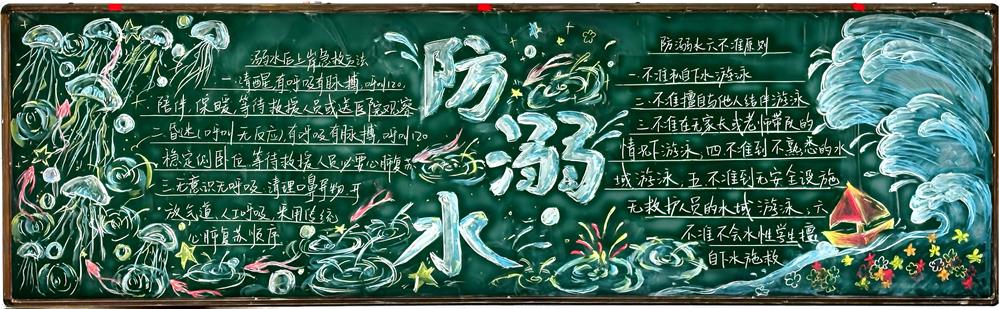 溺水后上岸急救方法
一.清醒,有呼吸有脉搏,呼叫120,
陪伴,保暖,等待救援人员或送医院观察
二.昏迷(呼叫无反应)有呼吸有脉搏,呼叫120
稳定侧卧位,等待救援人员必要心肺复苏
三.无意识无呼吸,清理口鼻异物,开
放气道、人工呼吸,采用传统
心肺复苏顺序
防
溺
水
防溺水六不准原则
一.不准私自下水游泳
二.不准擅自与他人结伴游泳
三.不准在无家长或老师带良的
情况下游泳,四.不准到不熟悉的水
域游泳,五.不准到无安全设施
无救护员的水域游泳,六
不准不会水性学生擅
自下水施救